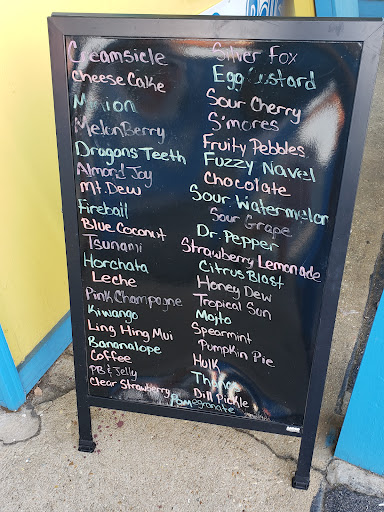 Creamsicle
Cheese Cake
Minion
MelonBerry
Dragons Teeth
Almond Joy
Mt. Dew
Fireball
Blue Coconut
Tsunami
Horchata
Leche
Pink Champagne
Kiwango
Ling Hing Mui
Bananalope
Coffee
PB & Jelly
Clear Strawberry
Silver Fox
Egg Custard
Sour Cherry
S'mores
Fruity Pebbles
Fuzzy Navel
Chocolate
Sour Watermelon
Sour Grape
Dr. Pepper
Strawberry Lemonade
Citrus Blast
Honey Dew
Tropical Sun
Mojito
Spearmint
Pumpkin Pie
Hulk
Thanos
Dill Pickle
Pomegranate